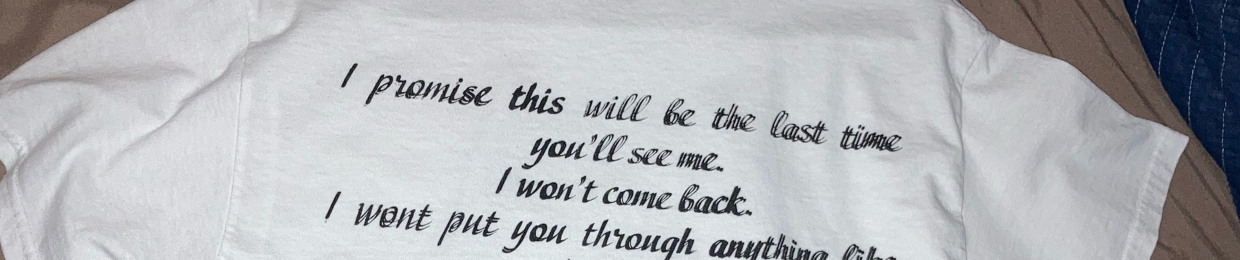 I promise this will be the last time
you'll see me.
I won't come back.
I wont put you through anything like